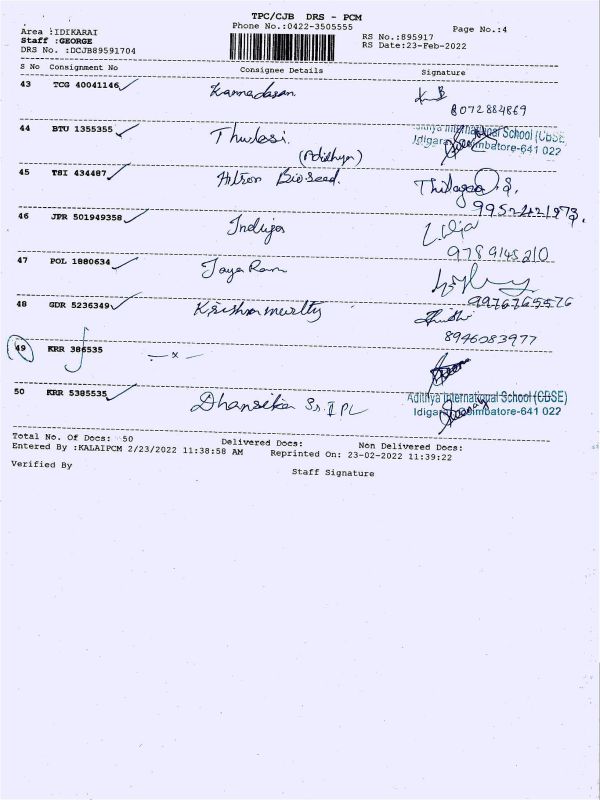 TPC/CJB DRS - PCM
Area :IDIKARAI Phone No.:0422-3505555 Page No.:4
Staff :GEORGE RS No.:895917
DRS No. :DCJB89591704 RS Date:23-Feb-2022
S No Consignment No Consignee Details Signature
43 TCG 40041146 Kannadasan
8072884869
44 BTU 1355355 Thulasi. International School (CBSE)
(Adithya) Idigarai, Coimbatore-641 022
45 TSI 434487 Hitron Bioseed.
46 JPR 501949358 Induja
9789145210
47 POL 1880634 Jaya Ram
9976765576
48 GDR 5236349 Krishnamurthy
8946083977
49 KRR 386535 — x —
50 KRR 5385535 Adithya International School (CBSE)
Sr. IPL Idigarai, Coimbatore-641 022
Total No. Of Docs: 50 Delivered Docs: Non Delivered Docs:
Entered By :KALAIPCM 2/23/2022 11:38:58 AM Reprinted On: 23-02-2022 11:39:22
Verified By Staff Signature